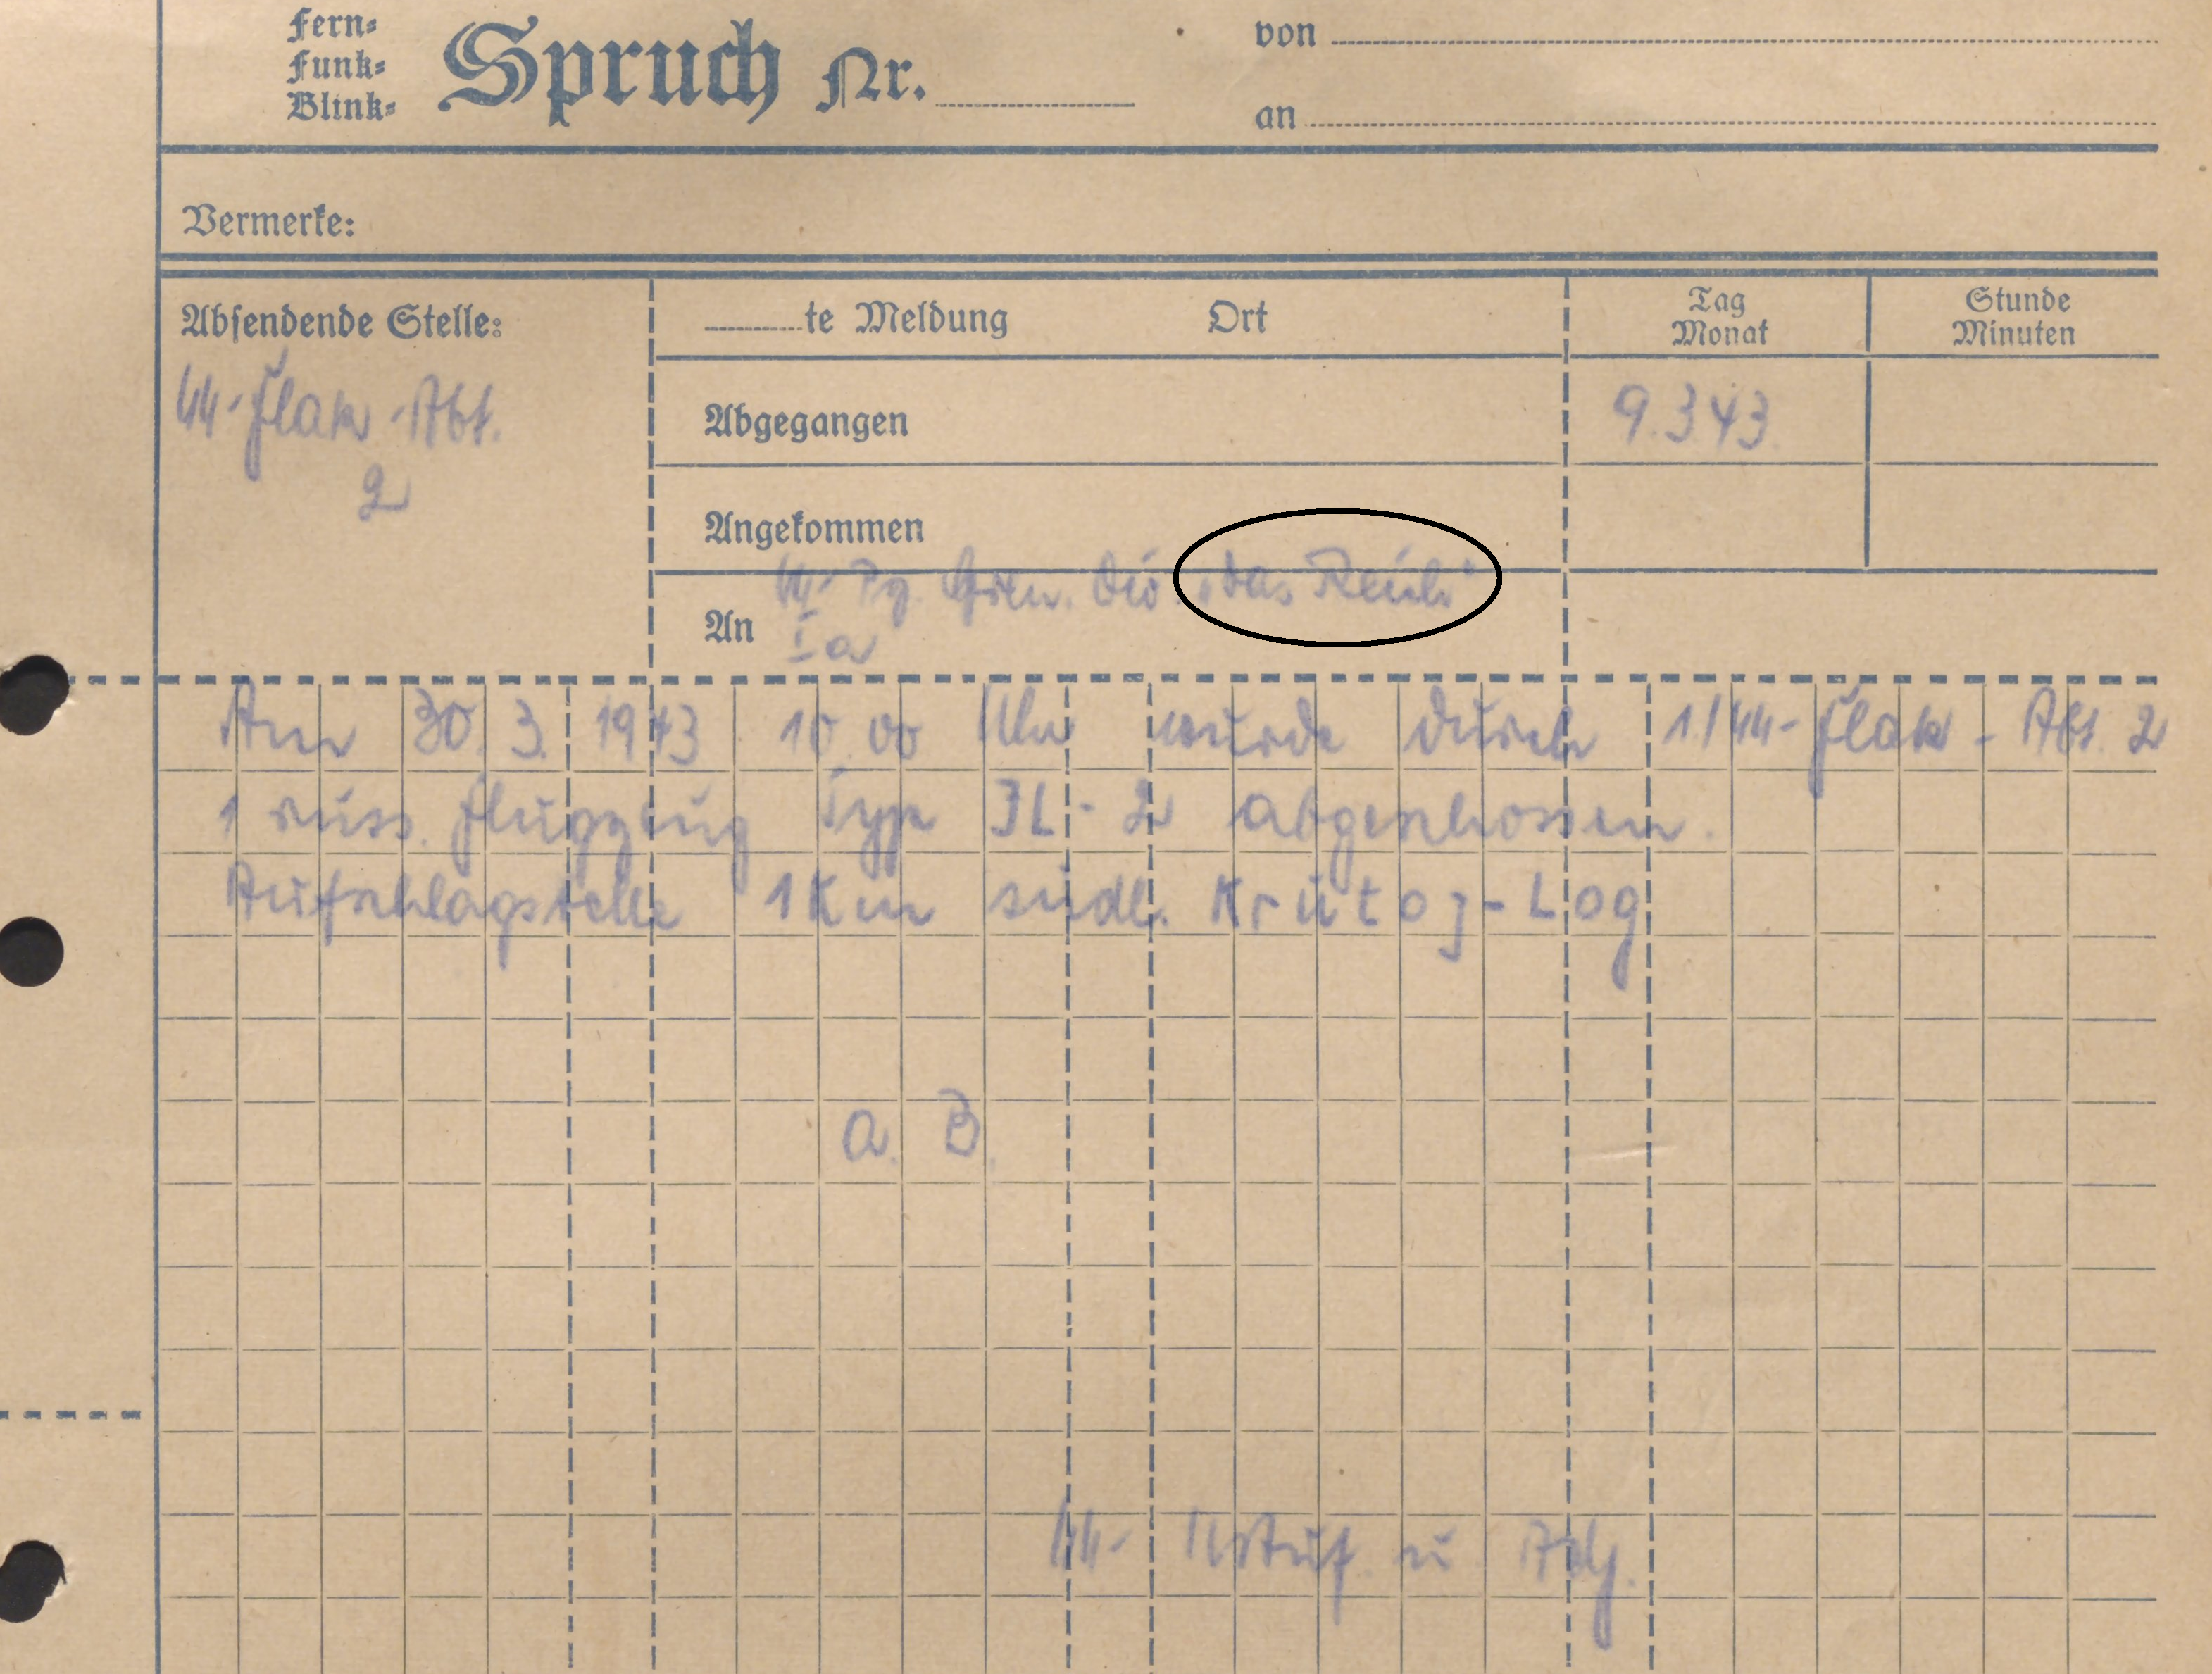 Fern-
Funk-
Blink-
Spruch Nr.
von
an
Vermerke:
Absendende Stelle:
te Meldung Ort
Tag
Monat
Stunde
Minuten
SS-Flak-Abt.
2
Abgegangen
9.3.43.
Angekommen
An
SS-Pz. Gren. Div. „Das Reich"
Ia
Am 30. 3. 1943 10.00 Uhr wurde durch 1./SS-Flak-Abt. 2
1 russ. Flugzeug Typ JL-2 abgeschossen.
Aufschlagstelle 1 Km südl. Krutoj-Log
a. B.
SS-Ustuf. u Adj.